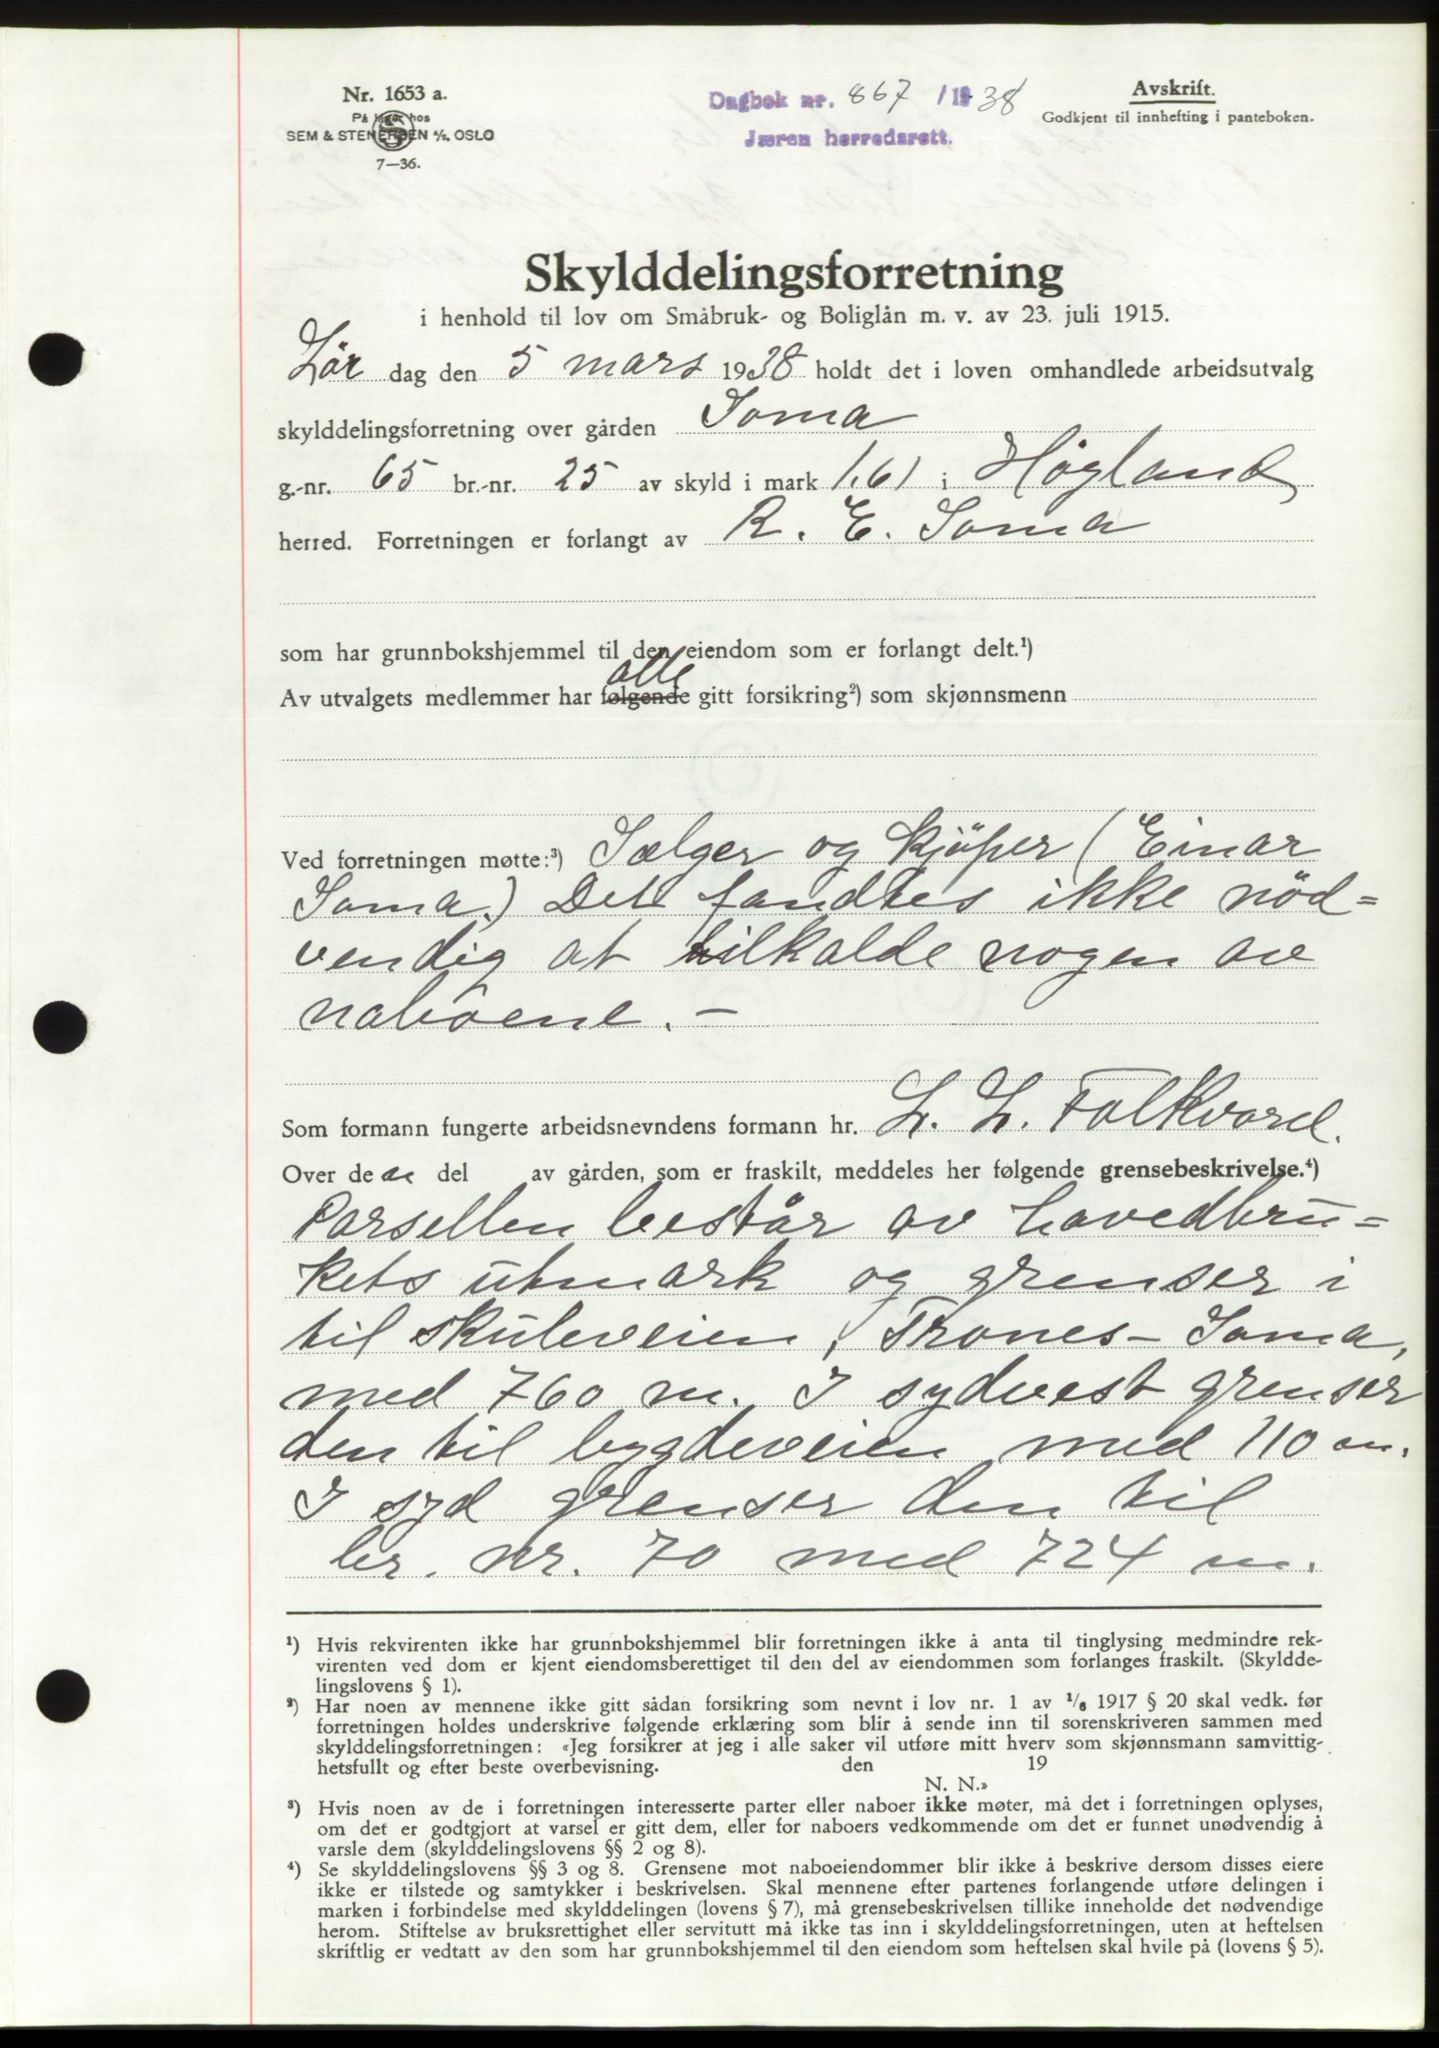 Nr. 1653 a.
På lager hos
SEM & STENERSEN A/S, OSLO
7—36.
Dagbok nr. 867 / 1938
Jæren herredsrett.
Avskrift.
Godkjent til innhefting i panteboken.
Skylddelingsforretning
i henhold til lov om Småbruk- og Boliglån m. v. av 23. juli 1915.
Lør dag den 5 mars 1938 holdt det i loven omhandlede arbeidsutvalg
skylddelingsforretning over gården Soma
g.-nr. 65 br.-nr. 25 av skyld i mark 1.61 i Høgland
herred. Forretningen er forlangt av R. E. Soma
som har grunnbokshjemmel til den eiendom som er forlangt delt.¹)
alle
Av utvalgets medlemmer har følgende gitt forsikring²) som skjønnsmenn
Ved forretningen møtte:³) Sælger og kjöper (Einar
Soma.) Det fandtes ikke nöd=
vendig at tilkalde nogen av
naboene. —
Som formann fungerte arbeidsnevndens formann hr. L. L. Folkvord.
Over de en del av gården, som er fraskilt, meddeles her følgende grensebeskrivelse.⁴)
Parsellen består av hovedbru=
kets utmark og grenser i
til skuleveien, Trones - Soma,
med 760 m. I sydvest grenser
den til bygdeveien med 110 m.
I syd grenser den til
br. nr. 70 med 724 m.
¹) Hvis rekvirenten ikke har grunnbokshjemmel blir forretningen ikke å anta til tinglysing medmindre rek-
virenten ved dom er kjent eiendomsberettiget til den del av eiendommen som forlanges fraskilt. (Skyldde-
lingslovens § 1).
²) Har noen av mennene ikke gitt sådan forsikring som nevnt i lov nr. 1 av ¹/₆ 1917 § 20 skal vedk. før
forretningen holdes underskrive følgende erklæring som blir å sende inn til sorenskriveren sammen med
skylddelingsforretningen: «Jeg forsikrer at jeg i alle saker vil utføre mitt hverv som skjønnsmann samvittig-
hetsfullt og efter beste overbevisning. den 19
N. N.»
³) Hvis noen av de i forretningen interesserte parter eller naboer ikke møter, må det i forretningen oplyses,
om det er godtgjort at varsel er gitt dem, eller for naboers vedkommende om det er funnet unødvendig å
varsle dem (skylddelingslovens §§ 2 og 8).
⁴) Se skylddelingslovens §§ 3 og 8. Grensene mot naboeiendommer blir ikke å beskrive dersom disses eiere
ikke er tilstede og samtykker i beskrivelsen. Skal mennene efter partenes forlangende utføre delingen i
marken i forbindelse med skylddelingen (lovens § 7), må grensebeskrivelsen tillike inneholde det nødvendige
herom. Stiftelse av bruksrettighet eller servitutt må ikke tas inn i skylddelingsforretningen, uten at heftelsen
skriftlig er vedtatt av den som har grunnbokshjemmel til den eiendom som heftelsen skal hvile på (lovens § 5).